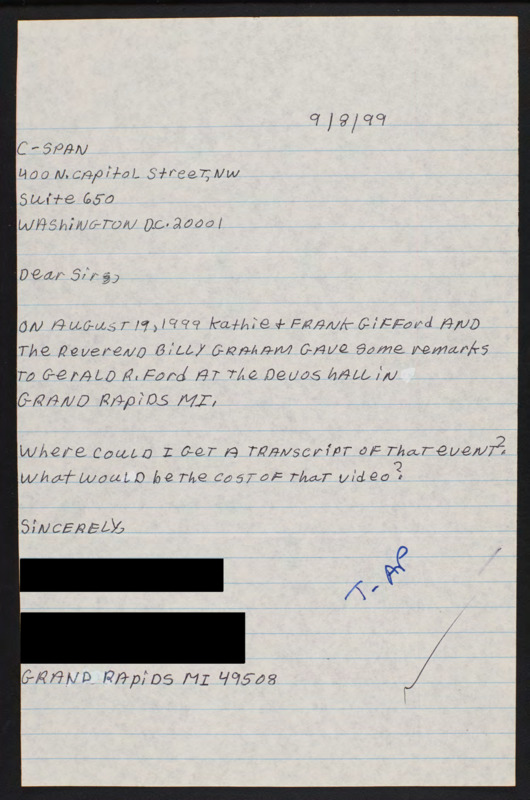 9/8/99
C-SPAN
400 N. CAPITOL STREET, NW
SUITE 650
WASHINGTON DC. 20001
Dear Sirs,
ON AUGUST 19, 1999 Kathie & FRANK GIFFORD AND
The Reverend BILLY GRAHAM GAVE some remarks
TO GERALD R. FORD AT The DEVOS hALL IN
GRAND RAPIDS MI,
Where COULD I GET A TRANSCRIPT OF That event?
What would be The COST OF That video?
SINCERELY,
T-AP
GRAND RAPIDS MI 49508